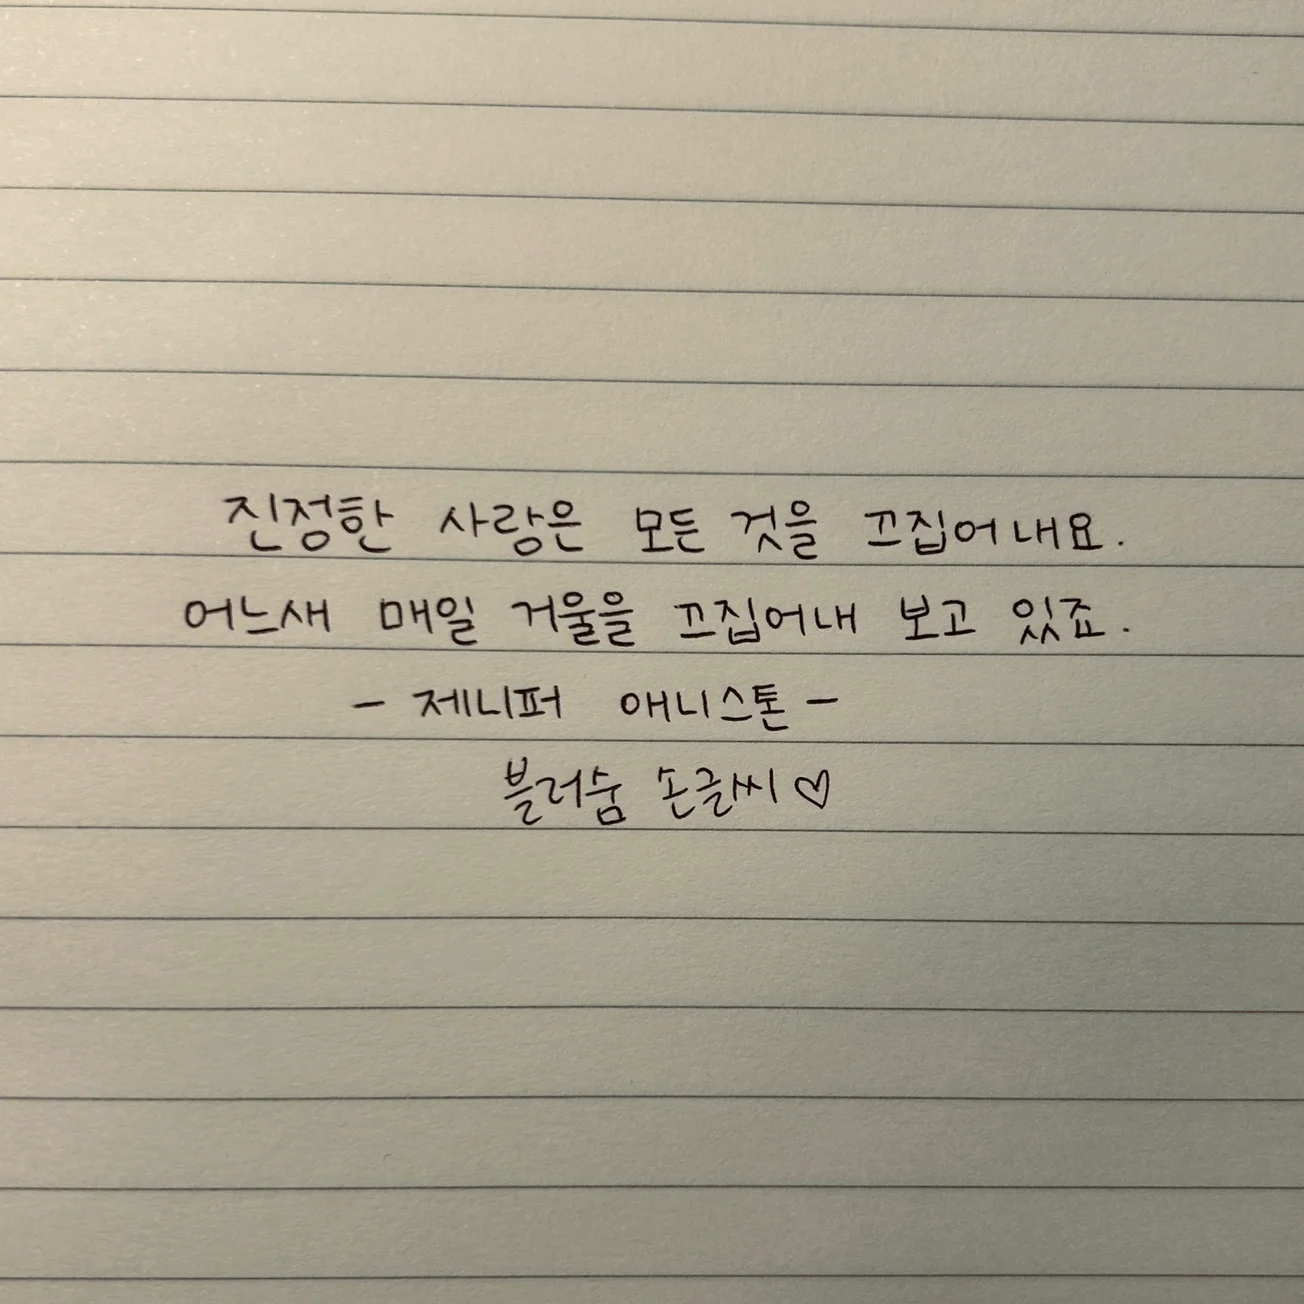 진정한 사랑은 모든 것을 끄집어내요.
어느새 매일 거울을 끄집어내 보고 있죠.
- 제니퍼 애니스톤 -
블러숨 손글씨♡